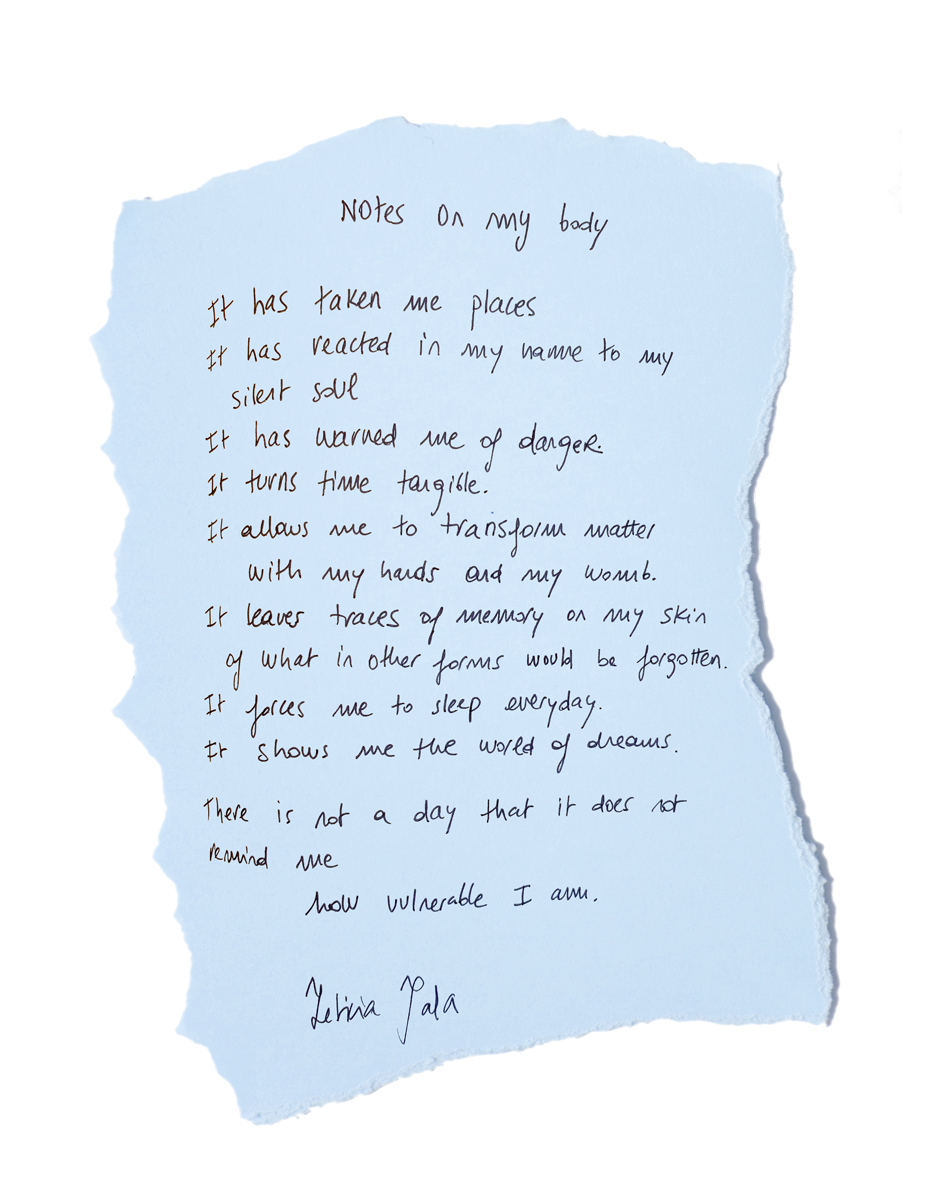 Notes on my body
It has taken me places
It has reacted in my name to my
silent soul
It has warned me of danger.
It turns time tangible.
It allows me to transform matter
with my hands and my womb.
It leaves traces of memory on my skin
of what in other forms would be forgotten.
It forces me to sleep everyday.
It shows me the world of dreams.
There is not a day that it does not
remind me
how vulnerable I am.
Leticia Sala